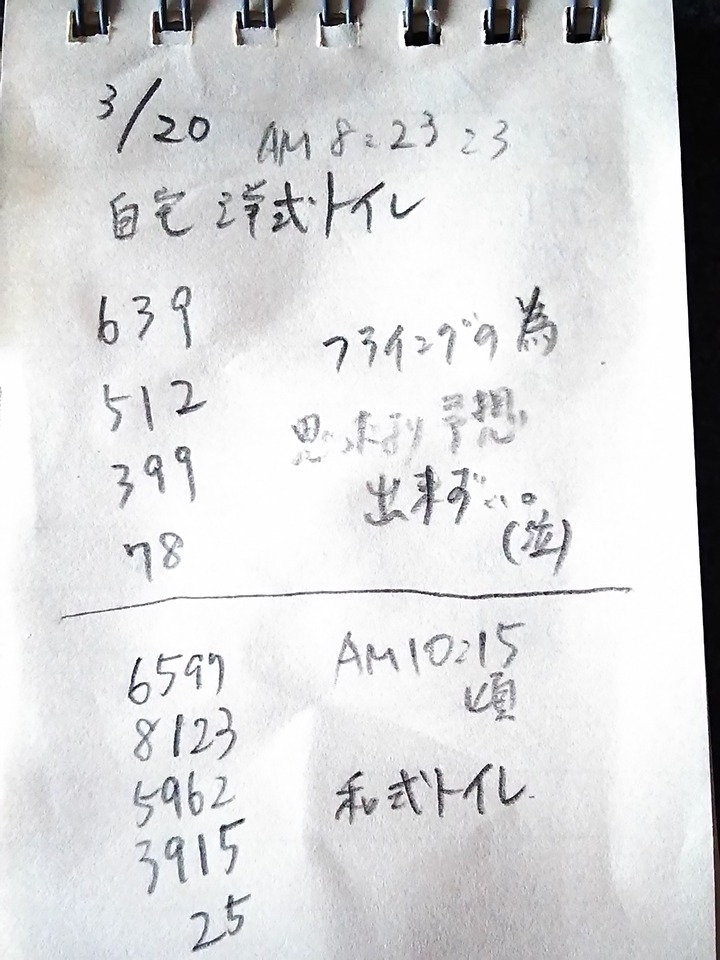 3/20 AM 8:23 23
自宅 洋式トイレ
639
512
399
78
フライングの為
思った より 予想
出来ず…。
(泣)
6597
8123
5962
3915
25
AM10:15
頃
和式トイレ